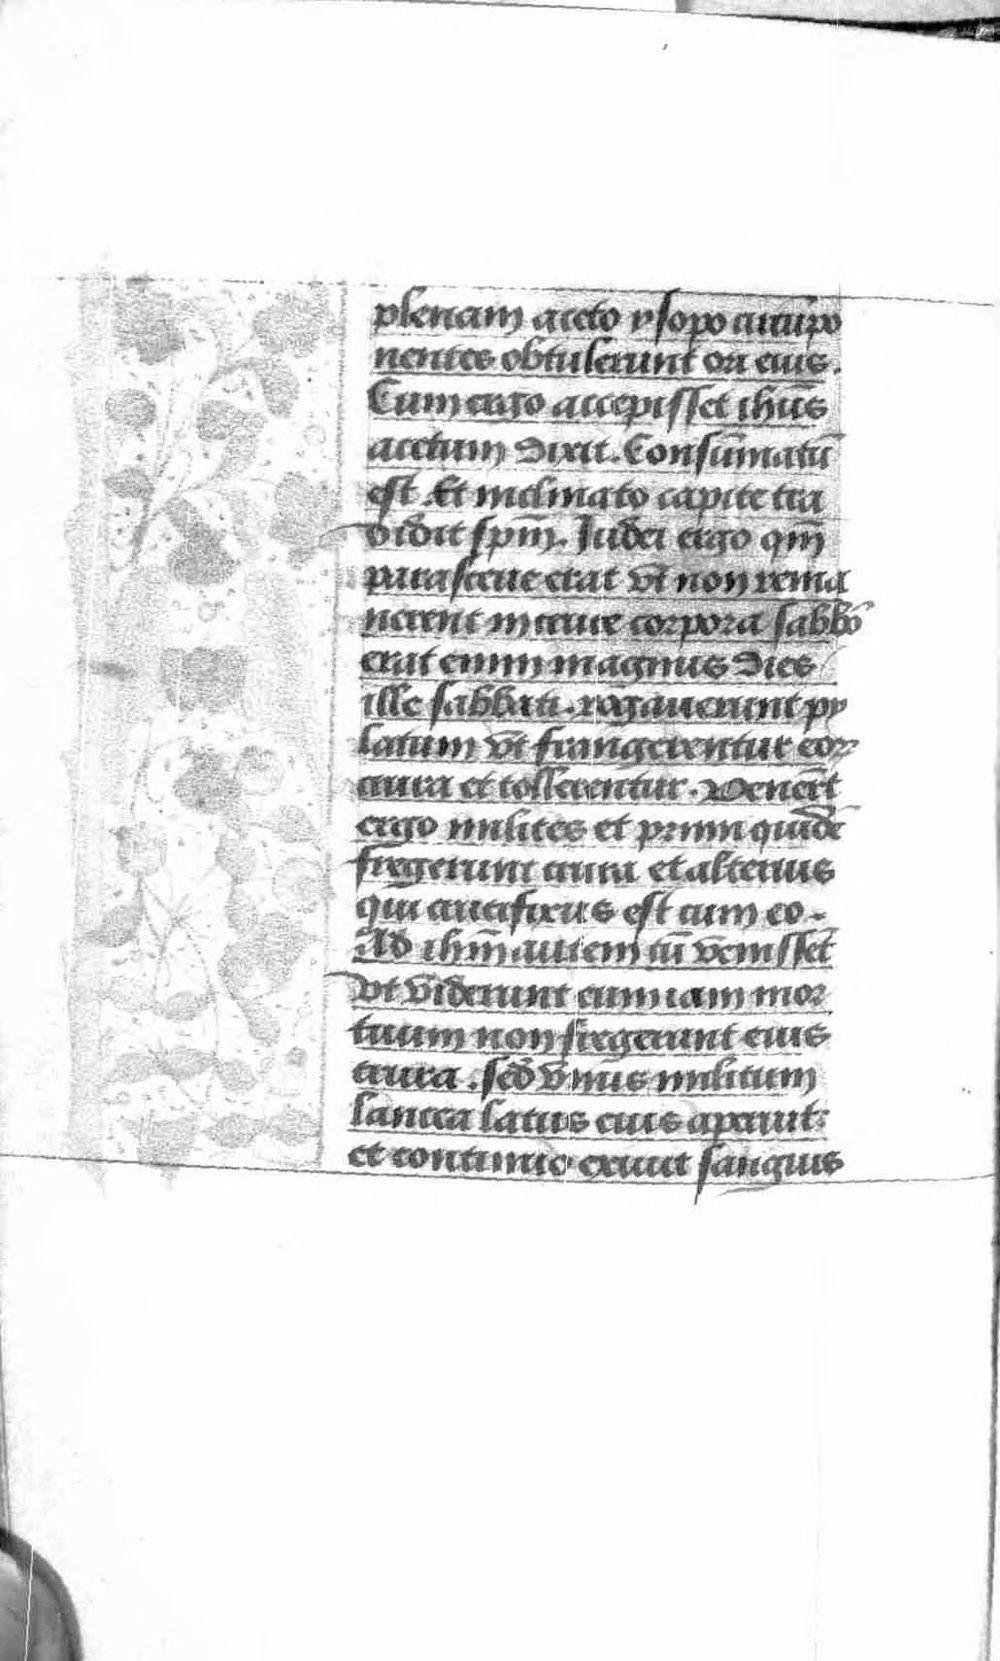 plenam aceto ysopo circūpo
nentes obtulerunt ori eius.
Cum ergo accepisset ihūs
acetum dixit. Consūmatū
est Et inclinato capite tra
didit spm̄. Iudei ergo qm̄
parasceue erat vt non rema
nerent in cruce corpora sabbō
erat enim magnus dies
ille sabbati. rogauerunt py
latum vt frangerentur eoꝝ
crura et tollerentur. Venert̄
ergo milites et primi quidē
fregerunt crura et alterius
qui crucifixus est cum eo.
Ad ihm̄ autem cū venissēt
vt viderunt eum iam mor
tuum non fregerunt eius
crura. sed vnus militum
lancea latus eius aperuit:
et continuo exiuit sanguis